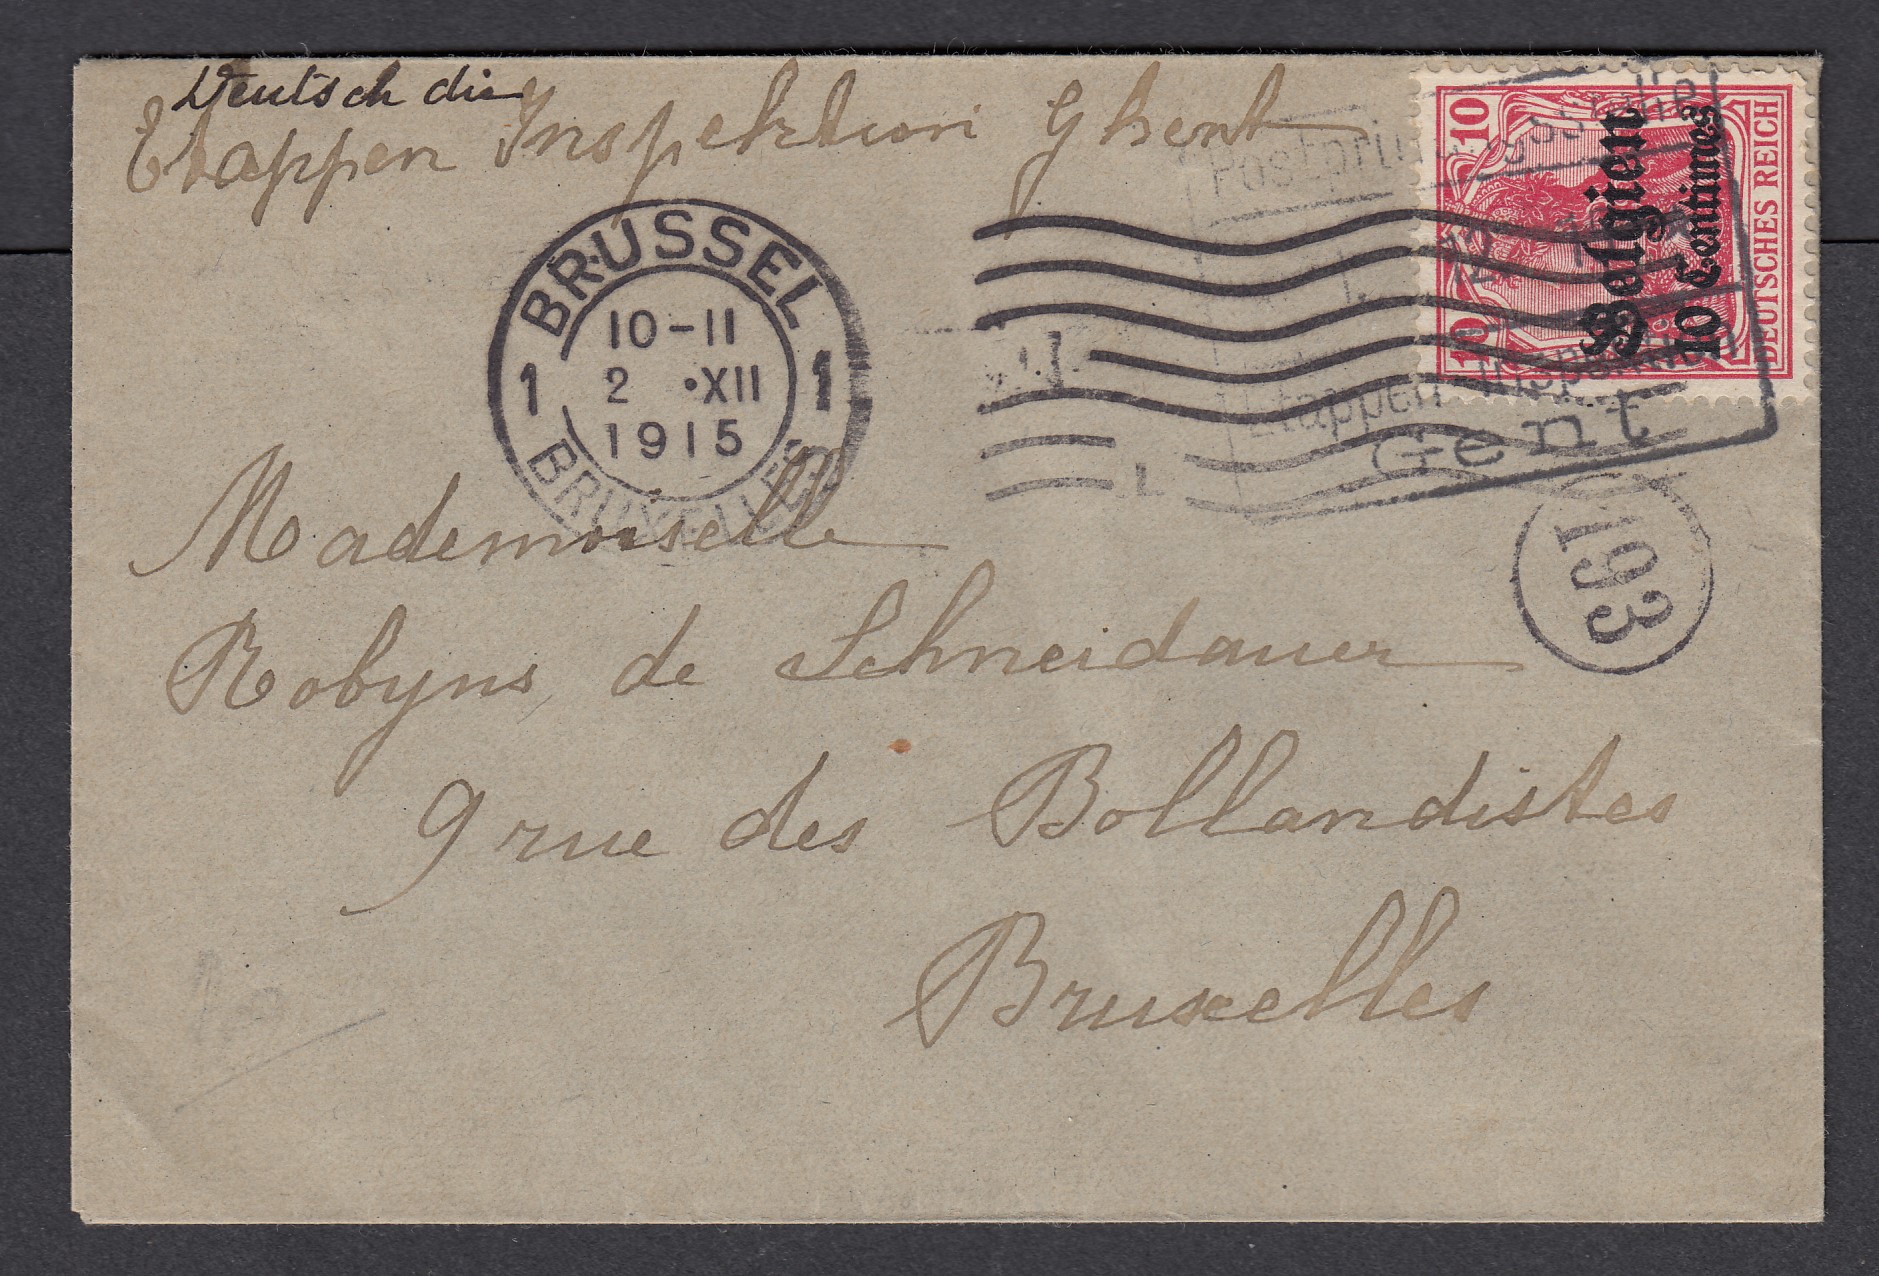 Deutsch die
Etappen Inspektion Ghent
BRÜSSEL
10-11
2 •XII
1915
1 1
BRUXELLES
Postprüfungsstelle
Etappen-Inspektion
Gent
10 10
DEUTSCHES REICH
Belgien
10 Centimes
193
Mademoiselle
Robyns de Schneidauer
9 rue des Bollandistes
Bruxelles